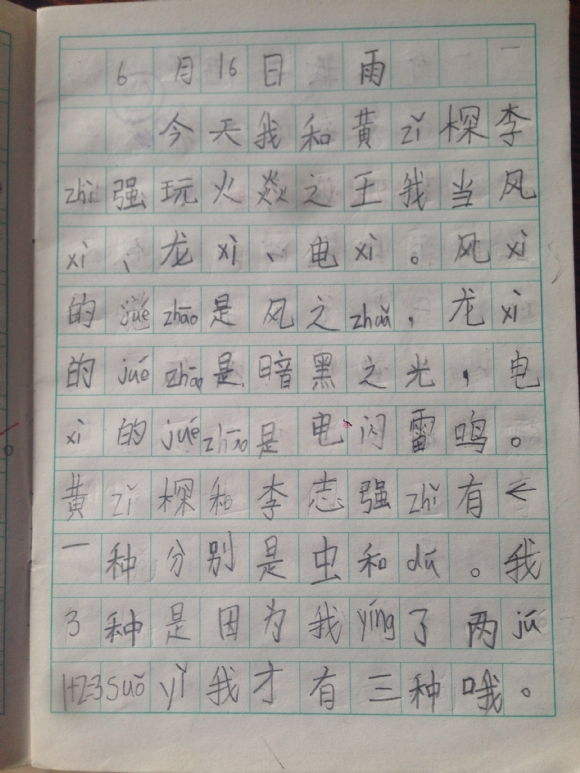 6月16日 雨
今天我和黄zǐ棎李
zhì强玩火焱之王我当风
xì、龙xì、电xì。风xì
的jué zhāo是风之zhuǎ，龙xì
的jué zhāo是暗黑之光，电
xì的jué zhāo是电闪雷鸣。
黄zǐ棎和李志强zhǐ有
一种分别是虫和dú。我
3种是因为我yíng了两jú
1+2=3 suǒ yǐ我才有三种哦。